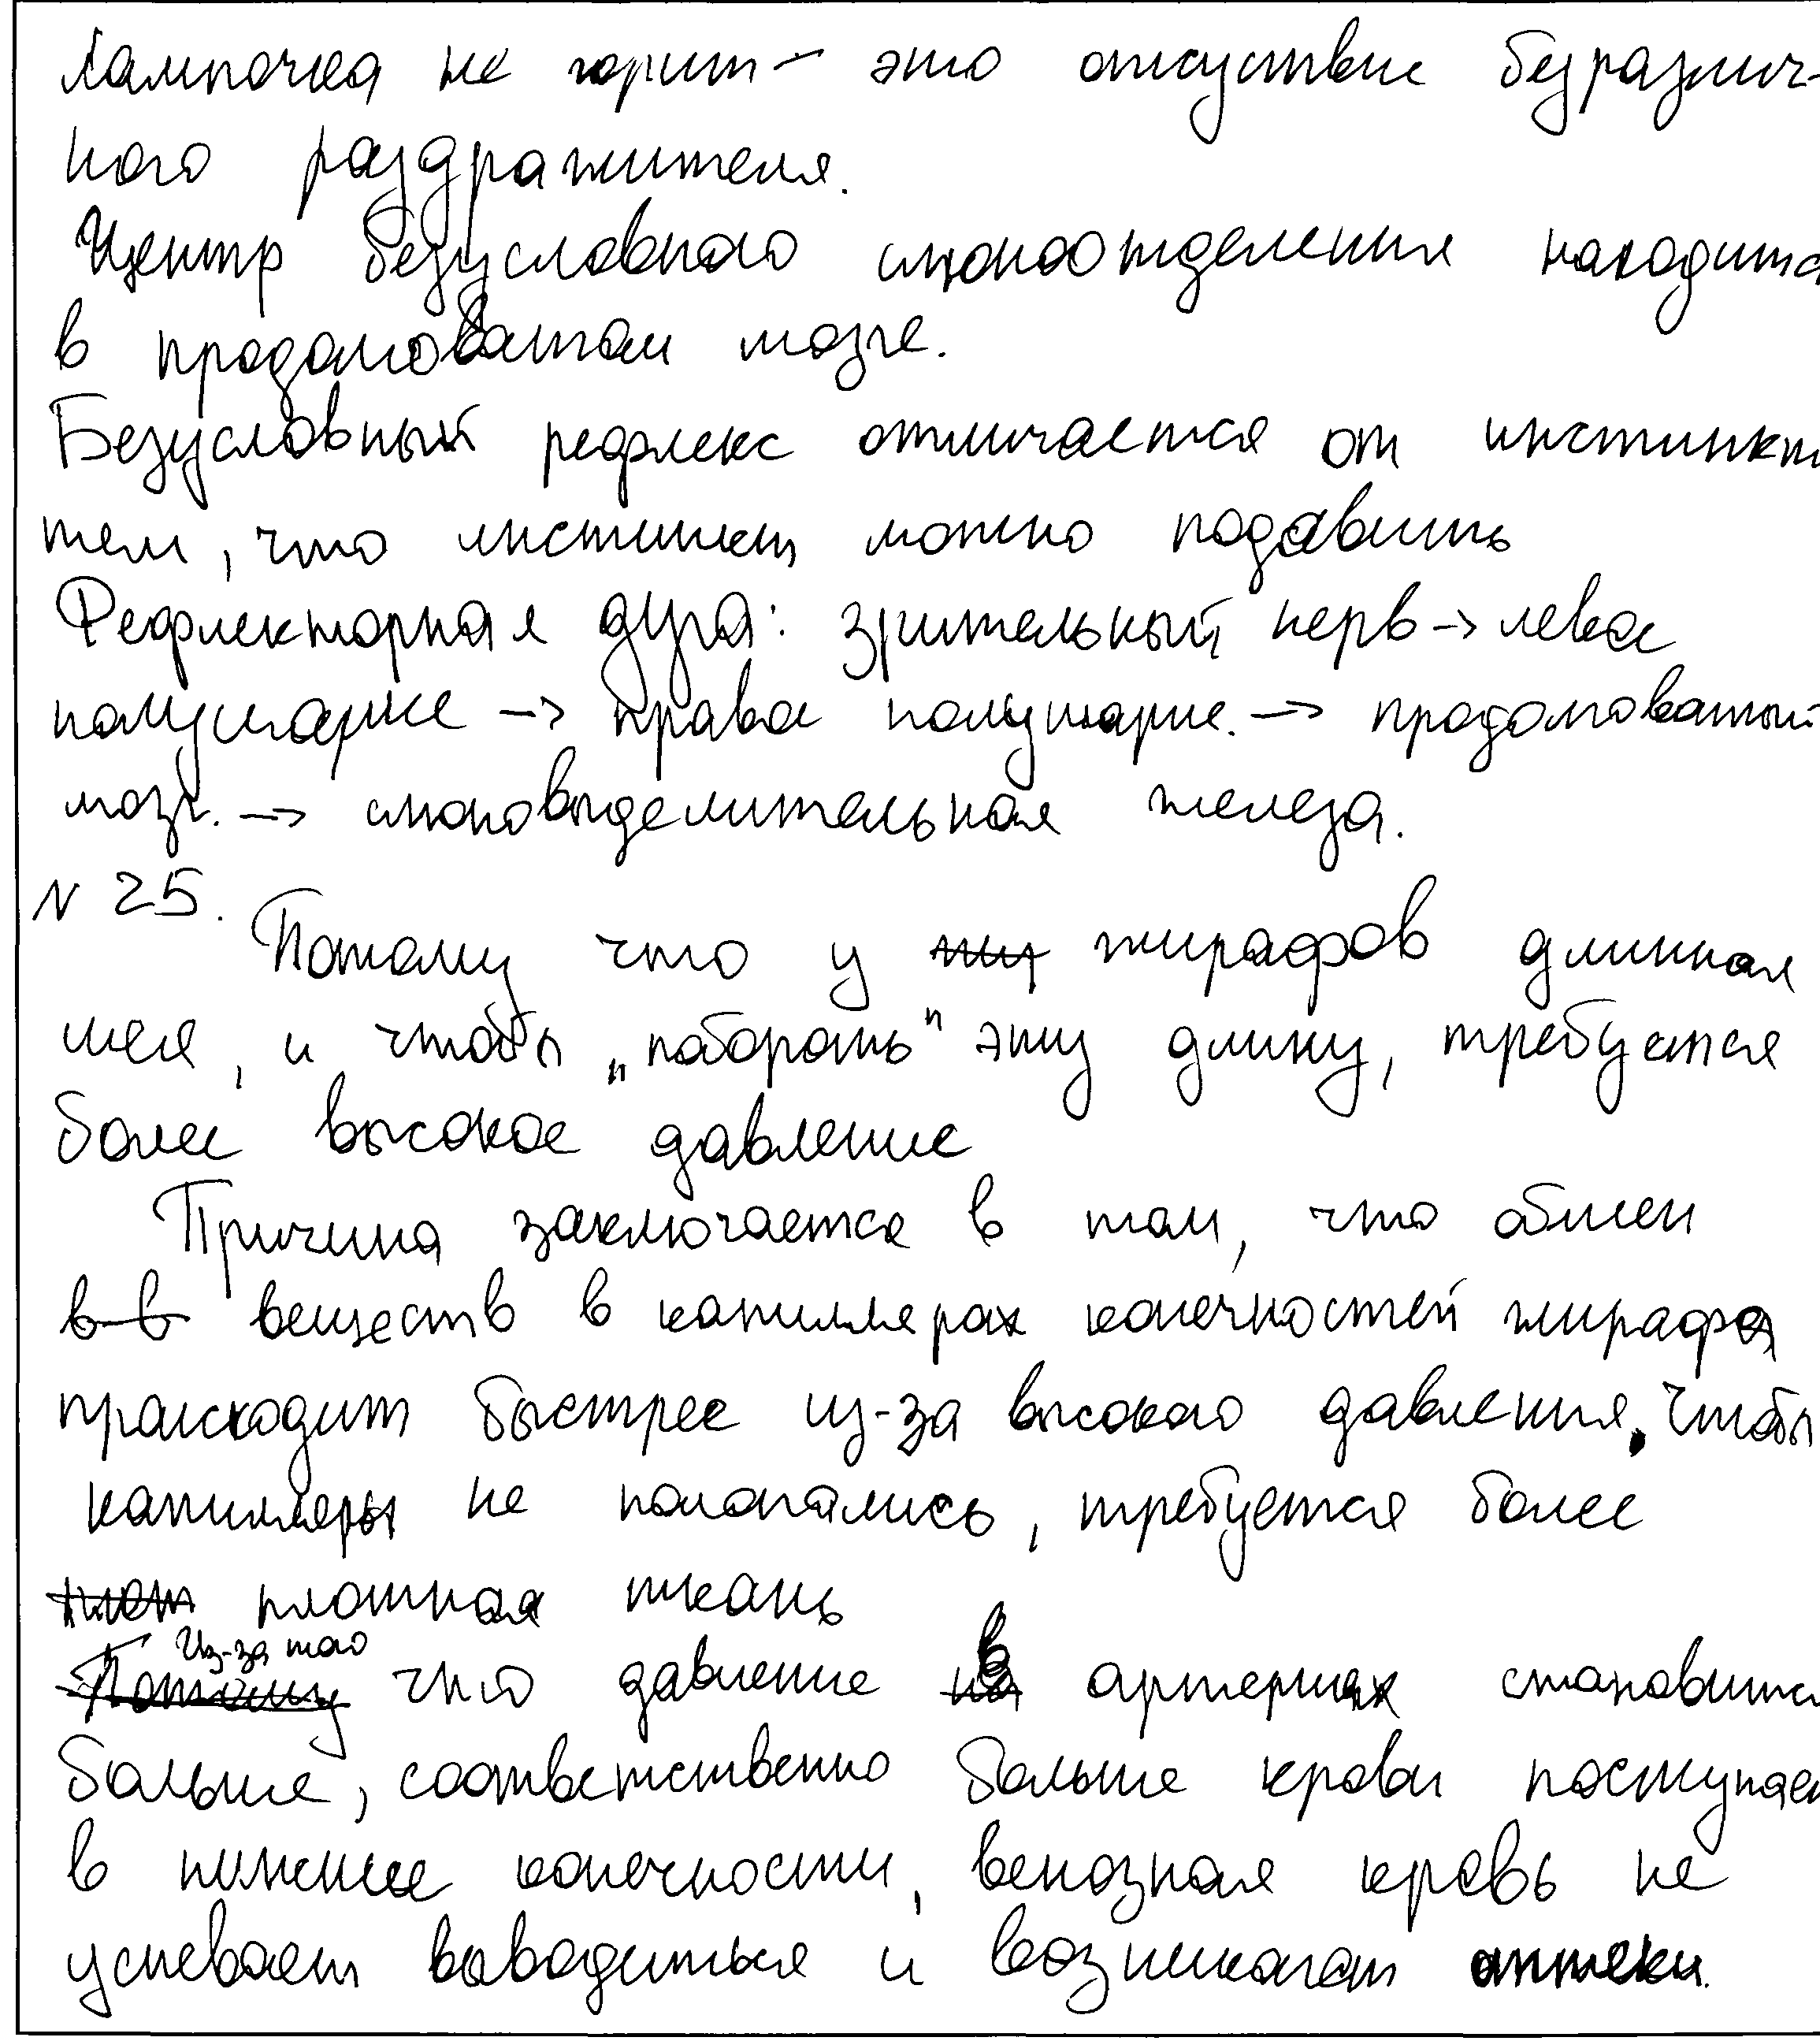 лампочка не горит – это отсуствие безразлич-
ного раздражителя.
Центр безусловного слюноотделения находится
в продолговатом мозге.
Безусловный рефлекс отличается от инстинкт
тем, что инстинкт можно подавить
Рефлекторная дуга: зрительный нерв → левое
полушарие → правое полушарие. → продолговатый
мозг. → слюновыделительная железа.
N 25.
Потому что у жирафов длинная
шея, и чтобы „побороть" эту длину, требуется
более высокое давление
Причина заключается в том, что обмен
веществ в капиллярах конечностей жирафа
происходит быстрее из-за высокого давления. Чтобы
капилляры не полопались, требуется более
плотная ткань
Из-за того что давление в артериях становится
больше, соответственно больше крови поступает
в нижние конечности, венозная кровь не
успевает выводиться и возникают отеки.